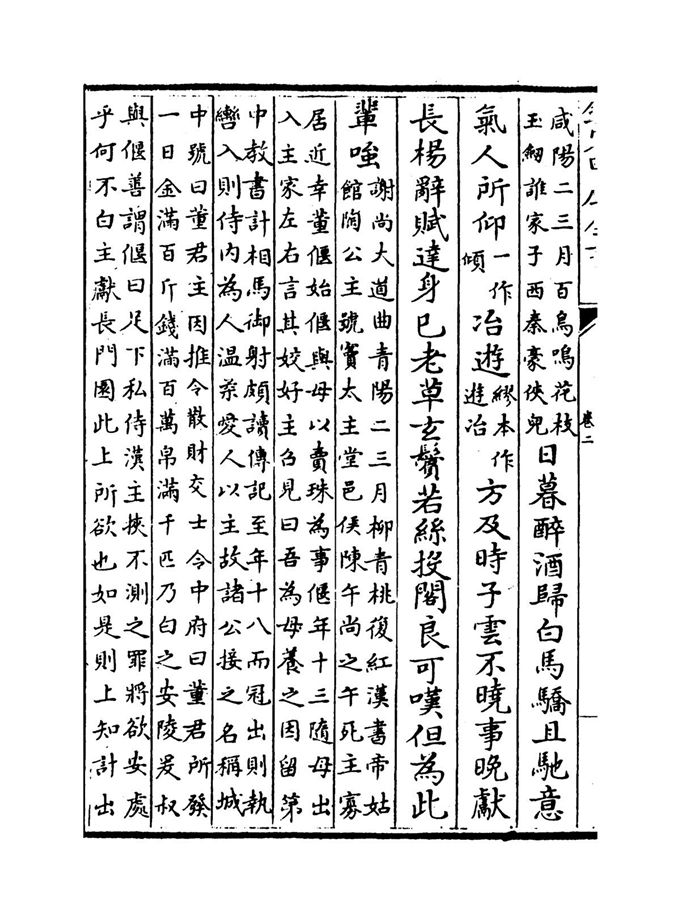 卷二
咸陽二三月百鳥鳴花枝
玉劒誰家子西秦豪俠兒
日暮醉酒歸白馬驕且馳意
氣人所仰一作傾冶遊繆本作遊冶方及時子雲不曉事晚獻
長楊辭賦達身已老草玄鬢若絲投閣良可嘆但為此
輩嗤
謝尚大道曲青陽二三月柳青桃復紅漢書帝姑
館陶公主號竇太主堂邑侯陳午尚之午死主寡
居近幸董偃始偃與母以賣珠為事偃年十三隨母出
入主家左右言其姣好主召見曰吾為母養之因留第
中教書計相馬御射頗讀傳記至年十八而冠出則執
轡入則侍內為人温柔愛人以主故諸公接之名稱城
中號曰董君主因推令散財交士令中府曰董君所發
一日金滿百斤錢滿百萬帛滿千匹乃白之安陵爰叔
與偃善謂偃曰足下私侍漢主挾不測之罪將欲安處
乎何不白主獻長門園此上所欲也如是則上知計出